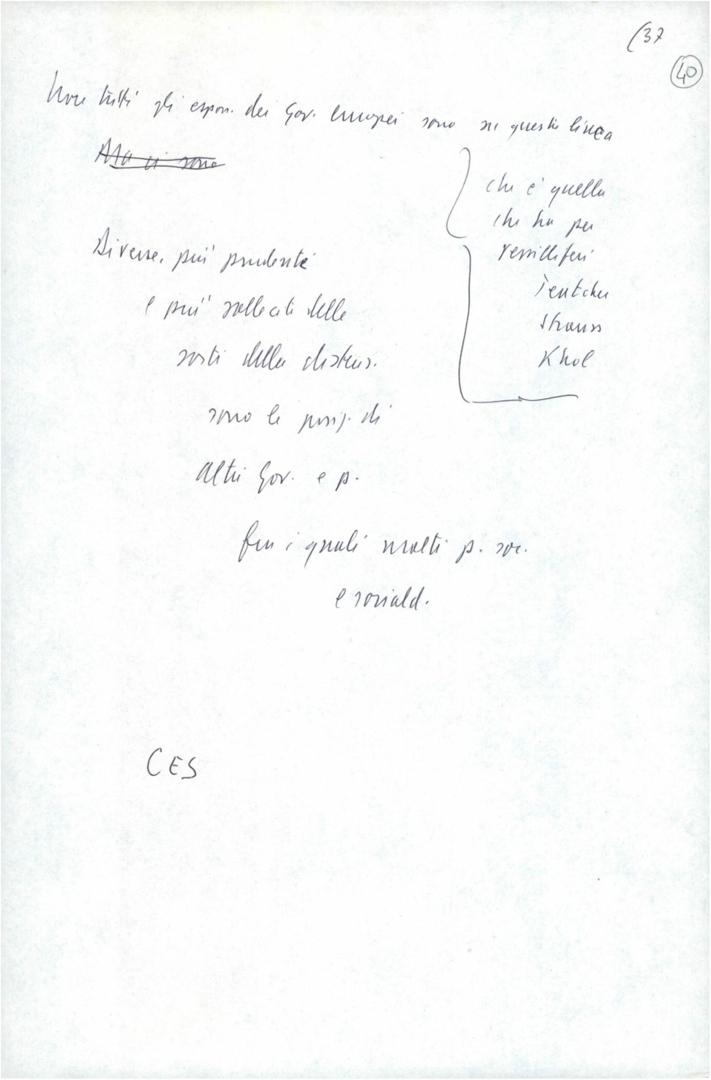 (37
40
Non tutti gli espon. dei Gov. europei sono su questa linea
Ma ci sono
che è quella
che ha per
vessilliferi
Tentcher
Strauss
Khol
Diverse, più prudenti
e più sollecite delle
sorti della distens.
sono le posiz. di
altri Gov. e p.
fra i quali molti p. soc.
e sociald.
CES